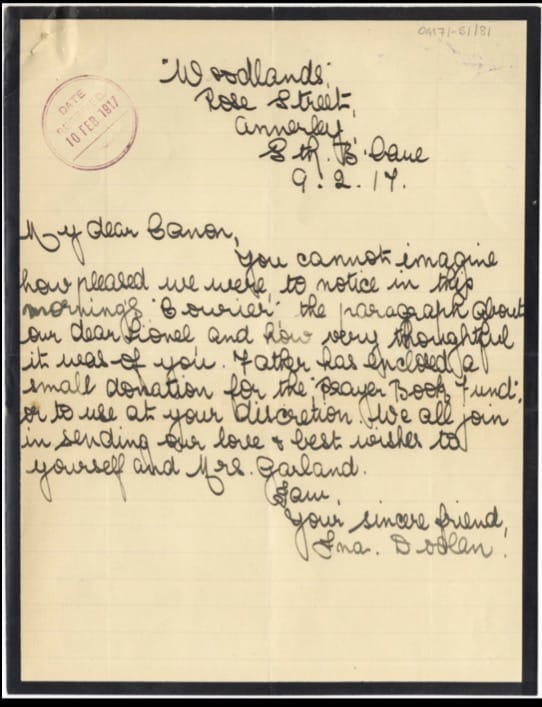 OM71-51/81
"Woodlands",
Rose Street,
Annerley,
Sth. B'bane
9.2.17.
DATE
RECEIVED
10 FEB 1917
My dear Canon,
You cannot imagine
how pleased we were to notice in this
morning's "Courier" the paragraph about
our dear Lionel and how very thoughtful
it was of you. Father has enclosed a
small donation for the "Prayer Book Fund",
or to use at your discretion. We all join
in sending our love & best wishes to
yourself and Mrs. Garland.
I am,
Your sincere friend,
Ina. Doolan.